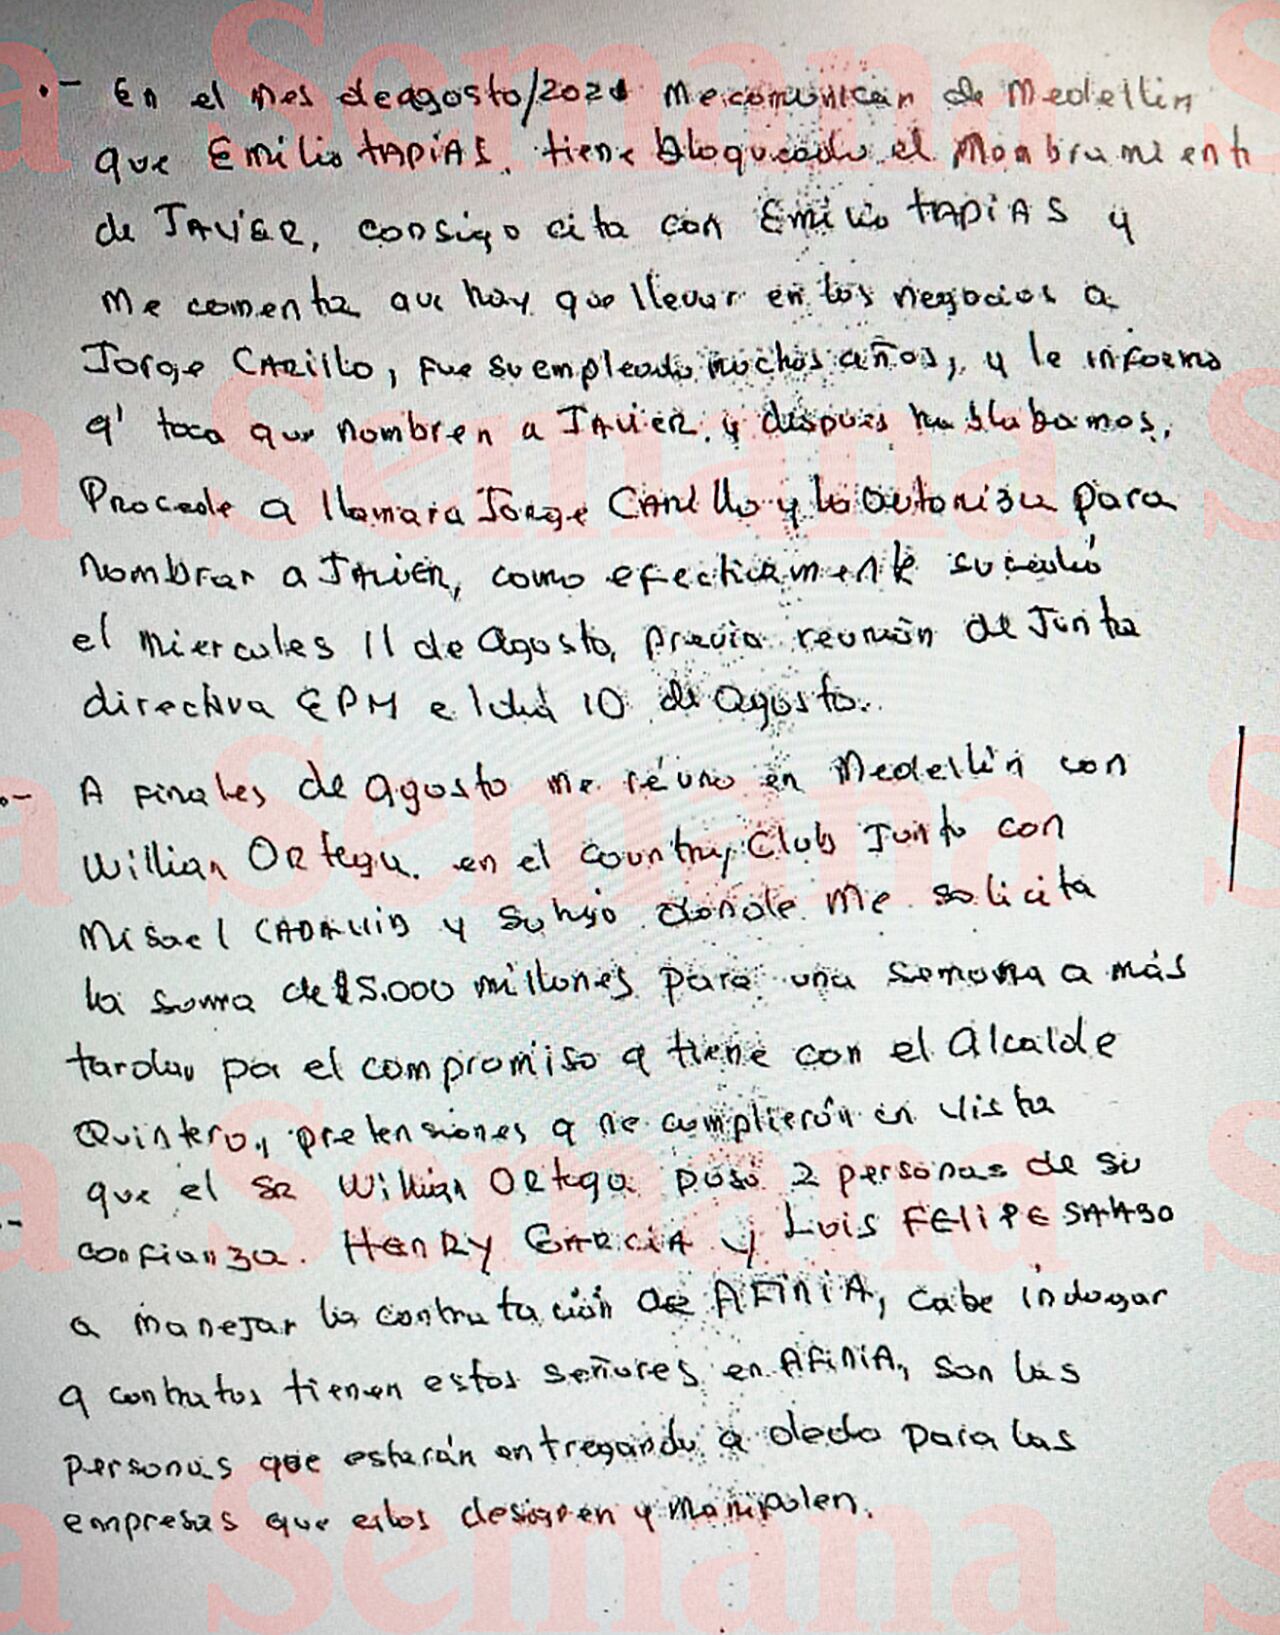 .- En el mes de agosto/2021 me comunican de Medellin
que Emilio TAPIAS, tiene bloqueado el Nombramient
de JAVIER, consigo cita con Emilio TAPIAS y
me comenta que hay que llevar en los negocios a
Jorge CARillo, fue su empleado muchos años, y le informo
q' toca que nombren a JAVIER y despues hablabamos.
Procede a llamar a Jorge CARillo y lo autoriza para
nombrar a JAVIER, como efectivamente sucedió
el miercoles 11 de agosto, previa reunión de Junta
directiva EPM el dia 10 de agosto.
.- A finales de agosto me reúno en Medellin con
Willian ORtega. en el country Club Junto con
Misael CADAVID y su hijo donde me solicita
la soma de $5.000 millones para una semana a más
tardar por el compromiso q tiene con el Alcalde
Quintero, pretensiones q no cumplierón en vista
que el SR Willian ORtega puso 2 personas de su
.- confianza. HENRY GARCIA y LUIS FELIPE
a manejar la contratación de AFINIA, cabe indagar
q contratos tienen estos señores en AFINIA, son las
personas que estarán entregando a dedo para las
empresas que ellos deseen y manipulen.
Semana